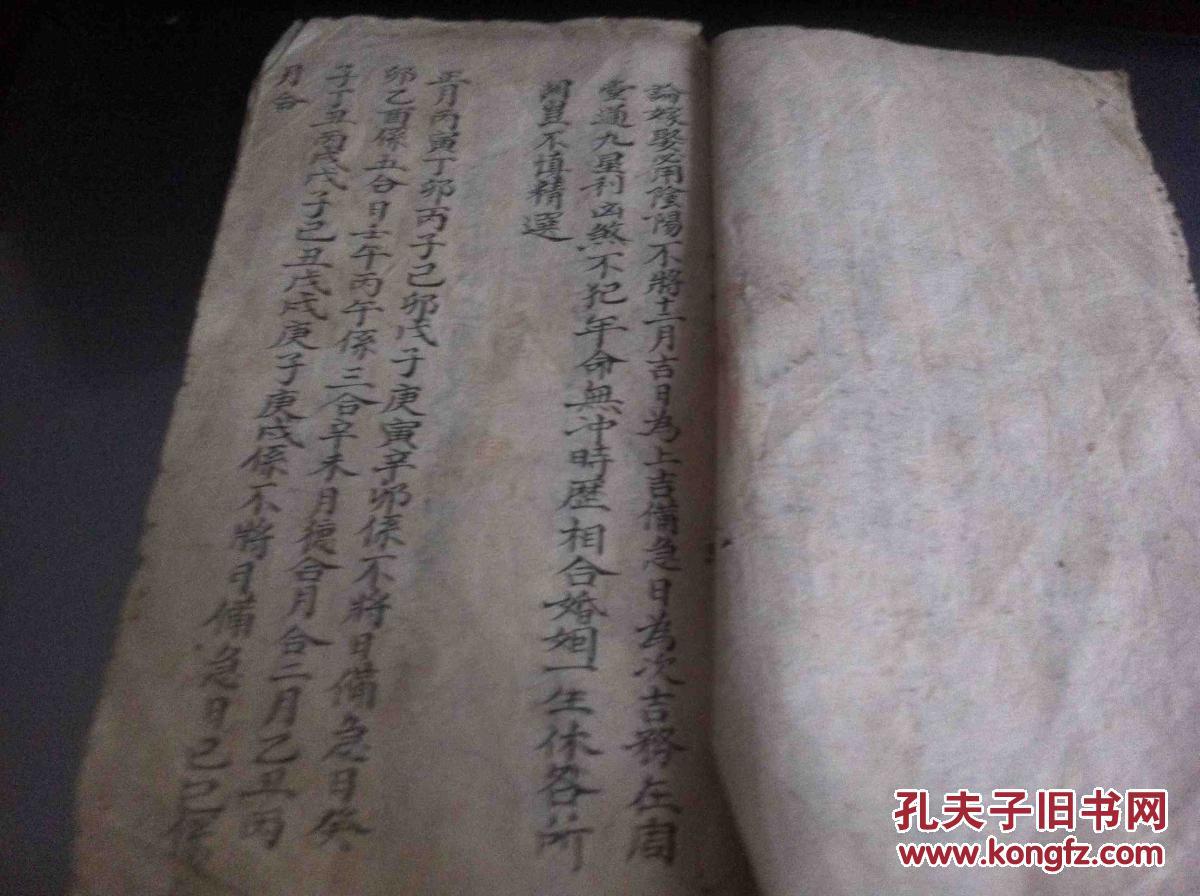 論嫁娶又用陰陽不將十二月吉日為上吉備急日為次吉務在周
堂通九星利凶煞不犯年命無冲時歷相合婚姻一生休咎所
関豈不慎精選
正月丙寅丁卯丙子己卯戊子庚寅辛卯係不將日備急日癸
卯乙酉係五合日壬午丙午係三合辛未月德合月合二月乙丑丙
子丁丑丙戌戊子己丑戊戌庚子庚戌係不將日備急日己巳係
月合
孔夫子旧书网
www.kongfz.com